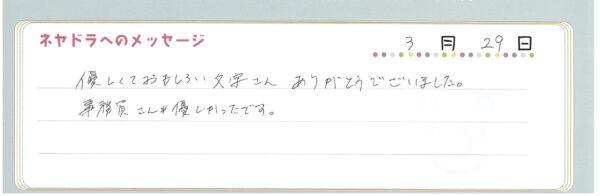 ネヤドラへのメッセージ
3月29日
優しくておもしろい文字さん ありがとうございました。
事務員さんも優しかったです。